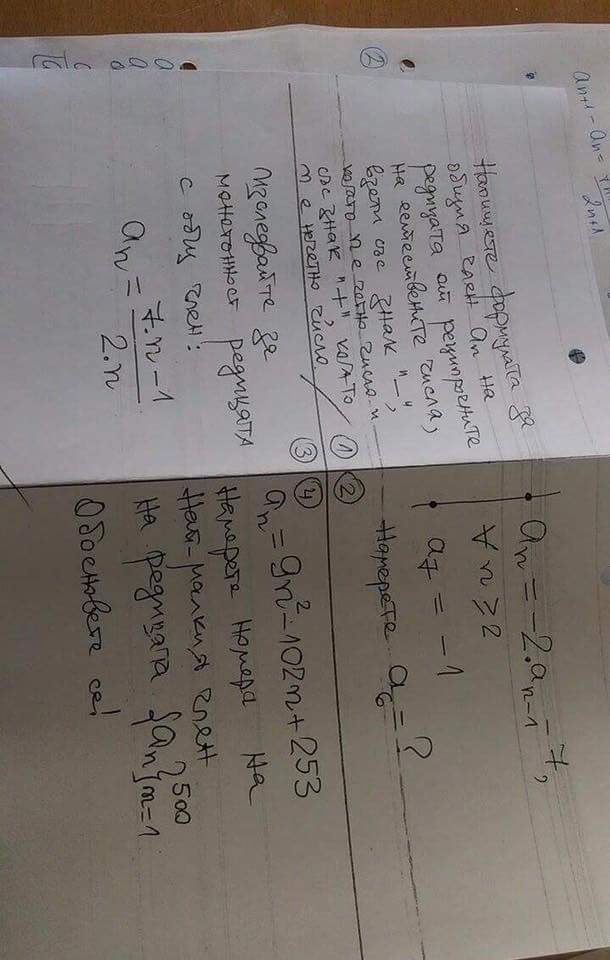 a_{n+1} - a_n =
2n+1
②
Напишете формулата за
общия член a_n на
редицата от реципрочните
на естествените числа,
взети със знак "-",
когато n е четно число и
със знак "+" когато
n е нечетно число
①
a_n = -2.a_{n-1} - 7,
∀ n ≥ 2
a_7 = -1
Намерете a_6 = ?
②
③
Изследвайте за
монотонност редицата
с общ член:
a_n = \frac{7.n-1}{2.n}
④
a_n = 9n² - 102n + 253
Намерете номера на
Най-малкия член
на редицата {a_n}_{n=1}^{500}
Обосновете се!